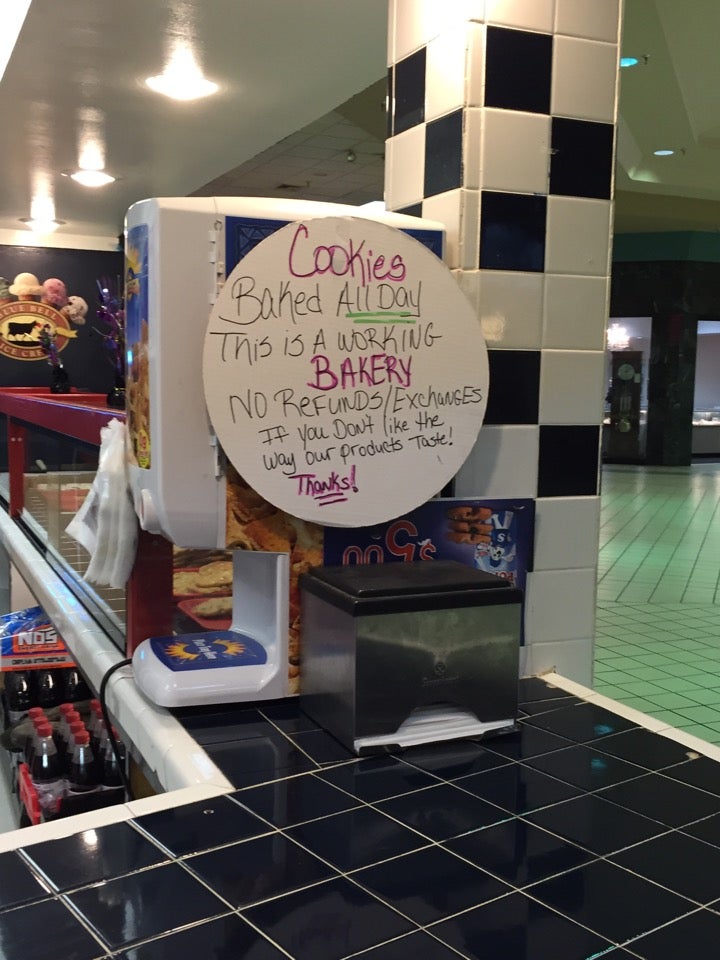 Cookies
Baked All Day
This is A working
BAKERY
No Refunds/Exchanges
If you Don't like the
way our products Taste!
Thanks!
BLUE BELL
ICE CREAM
NOS